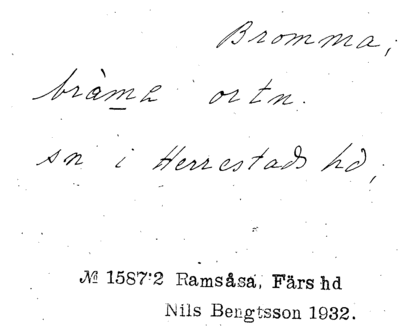 Bromma,
bràma ortn.
sn i Herrestads hd,
№ 1587:2 Ramsåsa, Färs hd
Nils Bengtsson 1932.